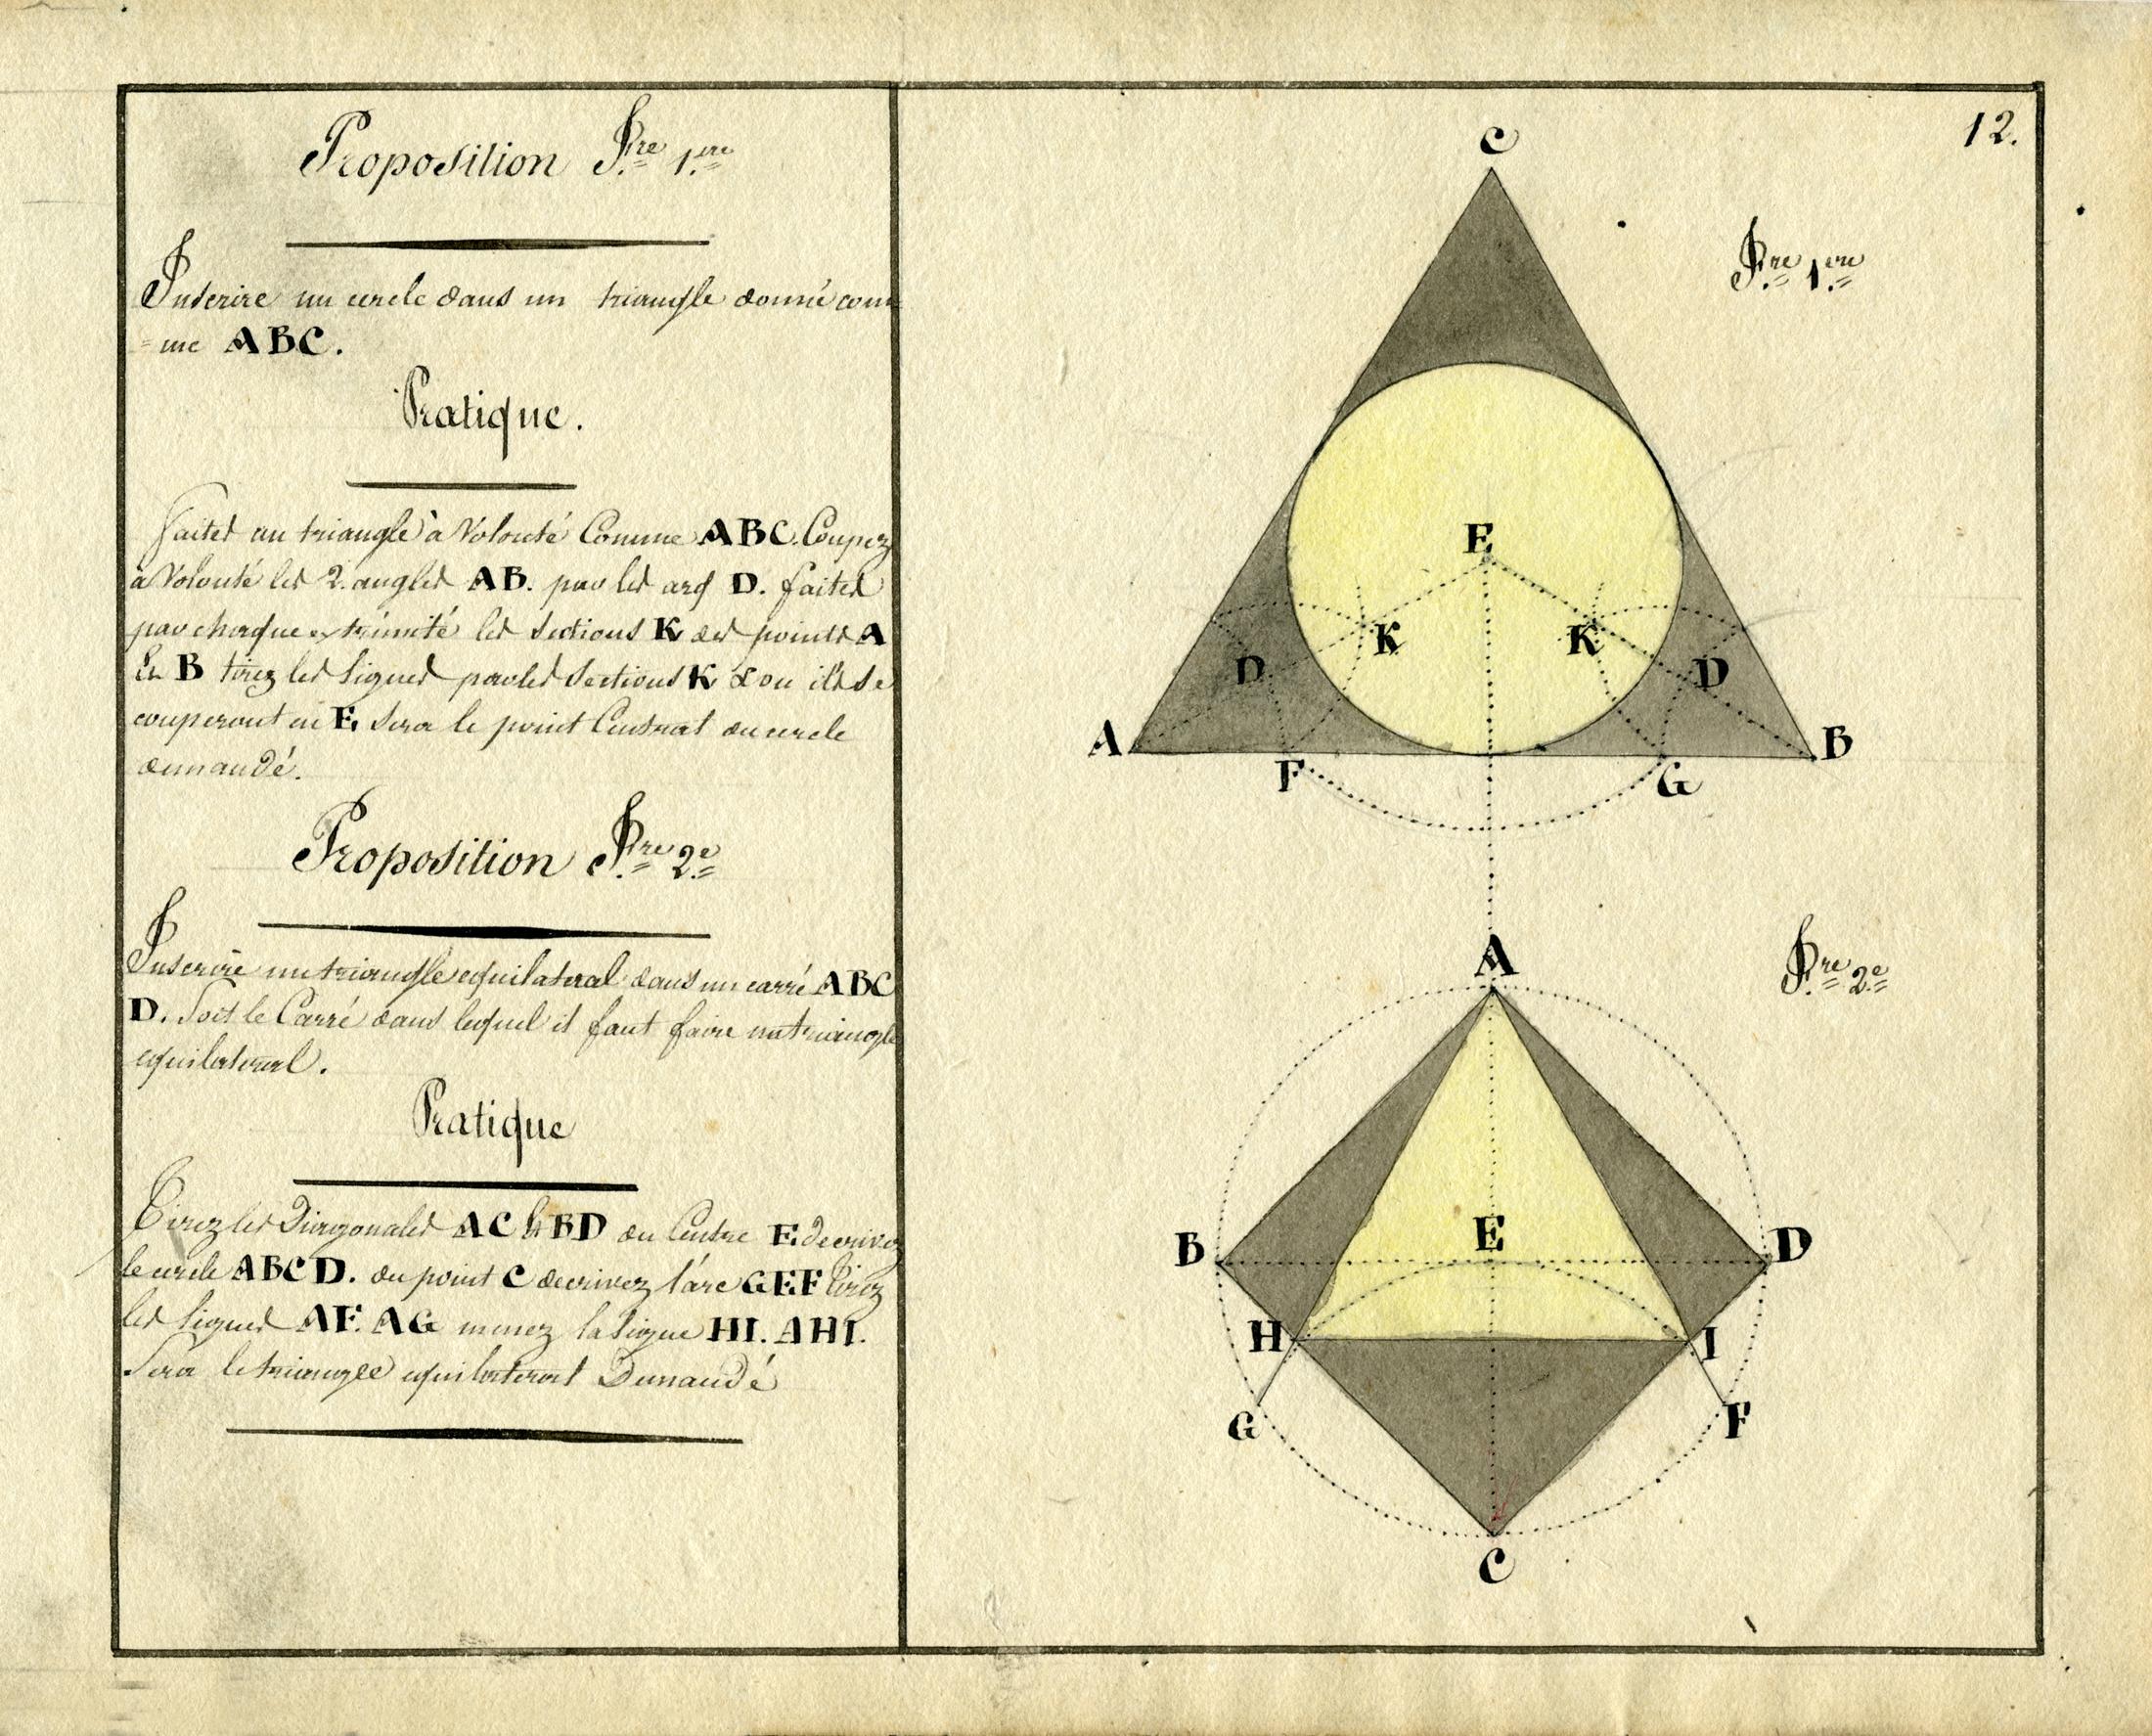 Proposition Fre 1.ere
Inscrire un cercle dans un triangle donné com
= me ABC.
Pratique.
faites un triangle à Volonté Comme ABC. Coupez
a Volonté les 2. angles AB. par les arq D. faites
par chaque extrémité les sections K des points A
Et B tirez les lignes par les sections K & ou ils se
couperont en E, sera le point Central du cercle
demandé.
Proposition Fre 2.e
Inscrire un triangle equilateral dans un carré ABC
D. Soit le Carré dans lequel il faut faire un triangle
equilateral.
Pratique
Tirez les Diagonales AC Et BD du Centre E. decrivez
le cercle ABCD. du point C decrivez l'arc GEF Tirez
les lignes AF. AG menez la ligne HI. AHI.
Sera le triangle equilateral Demandé
12.
Fre 1.ere
C
E
K K
D D
A B
F G
Fre 2.e
A
B E D
H I
G F
C